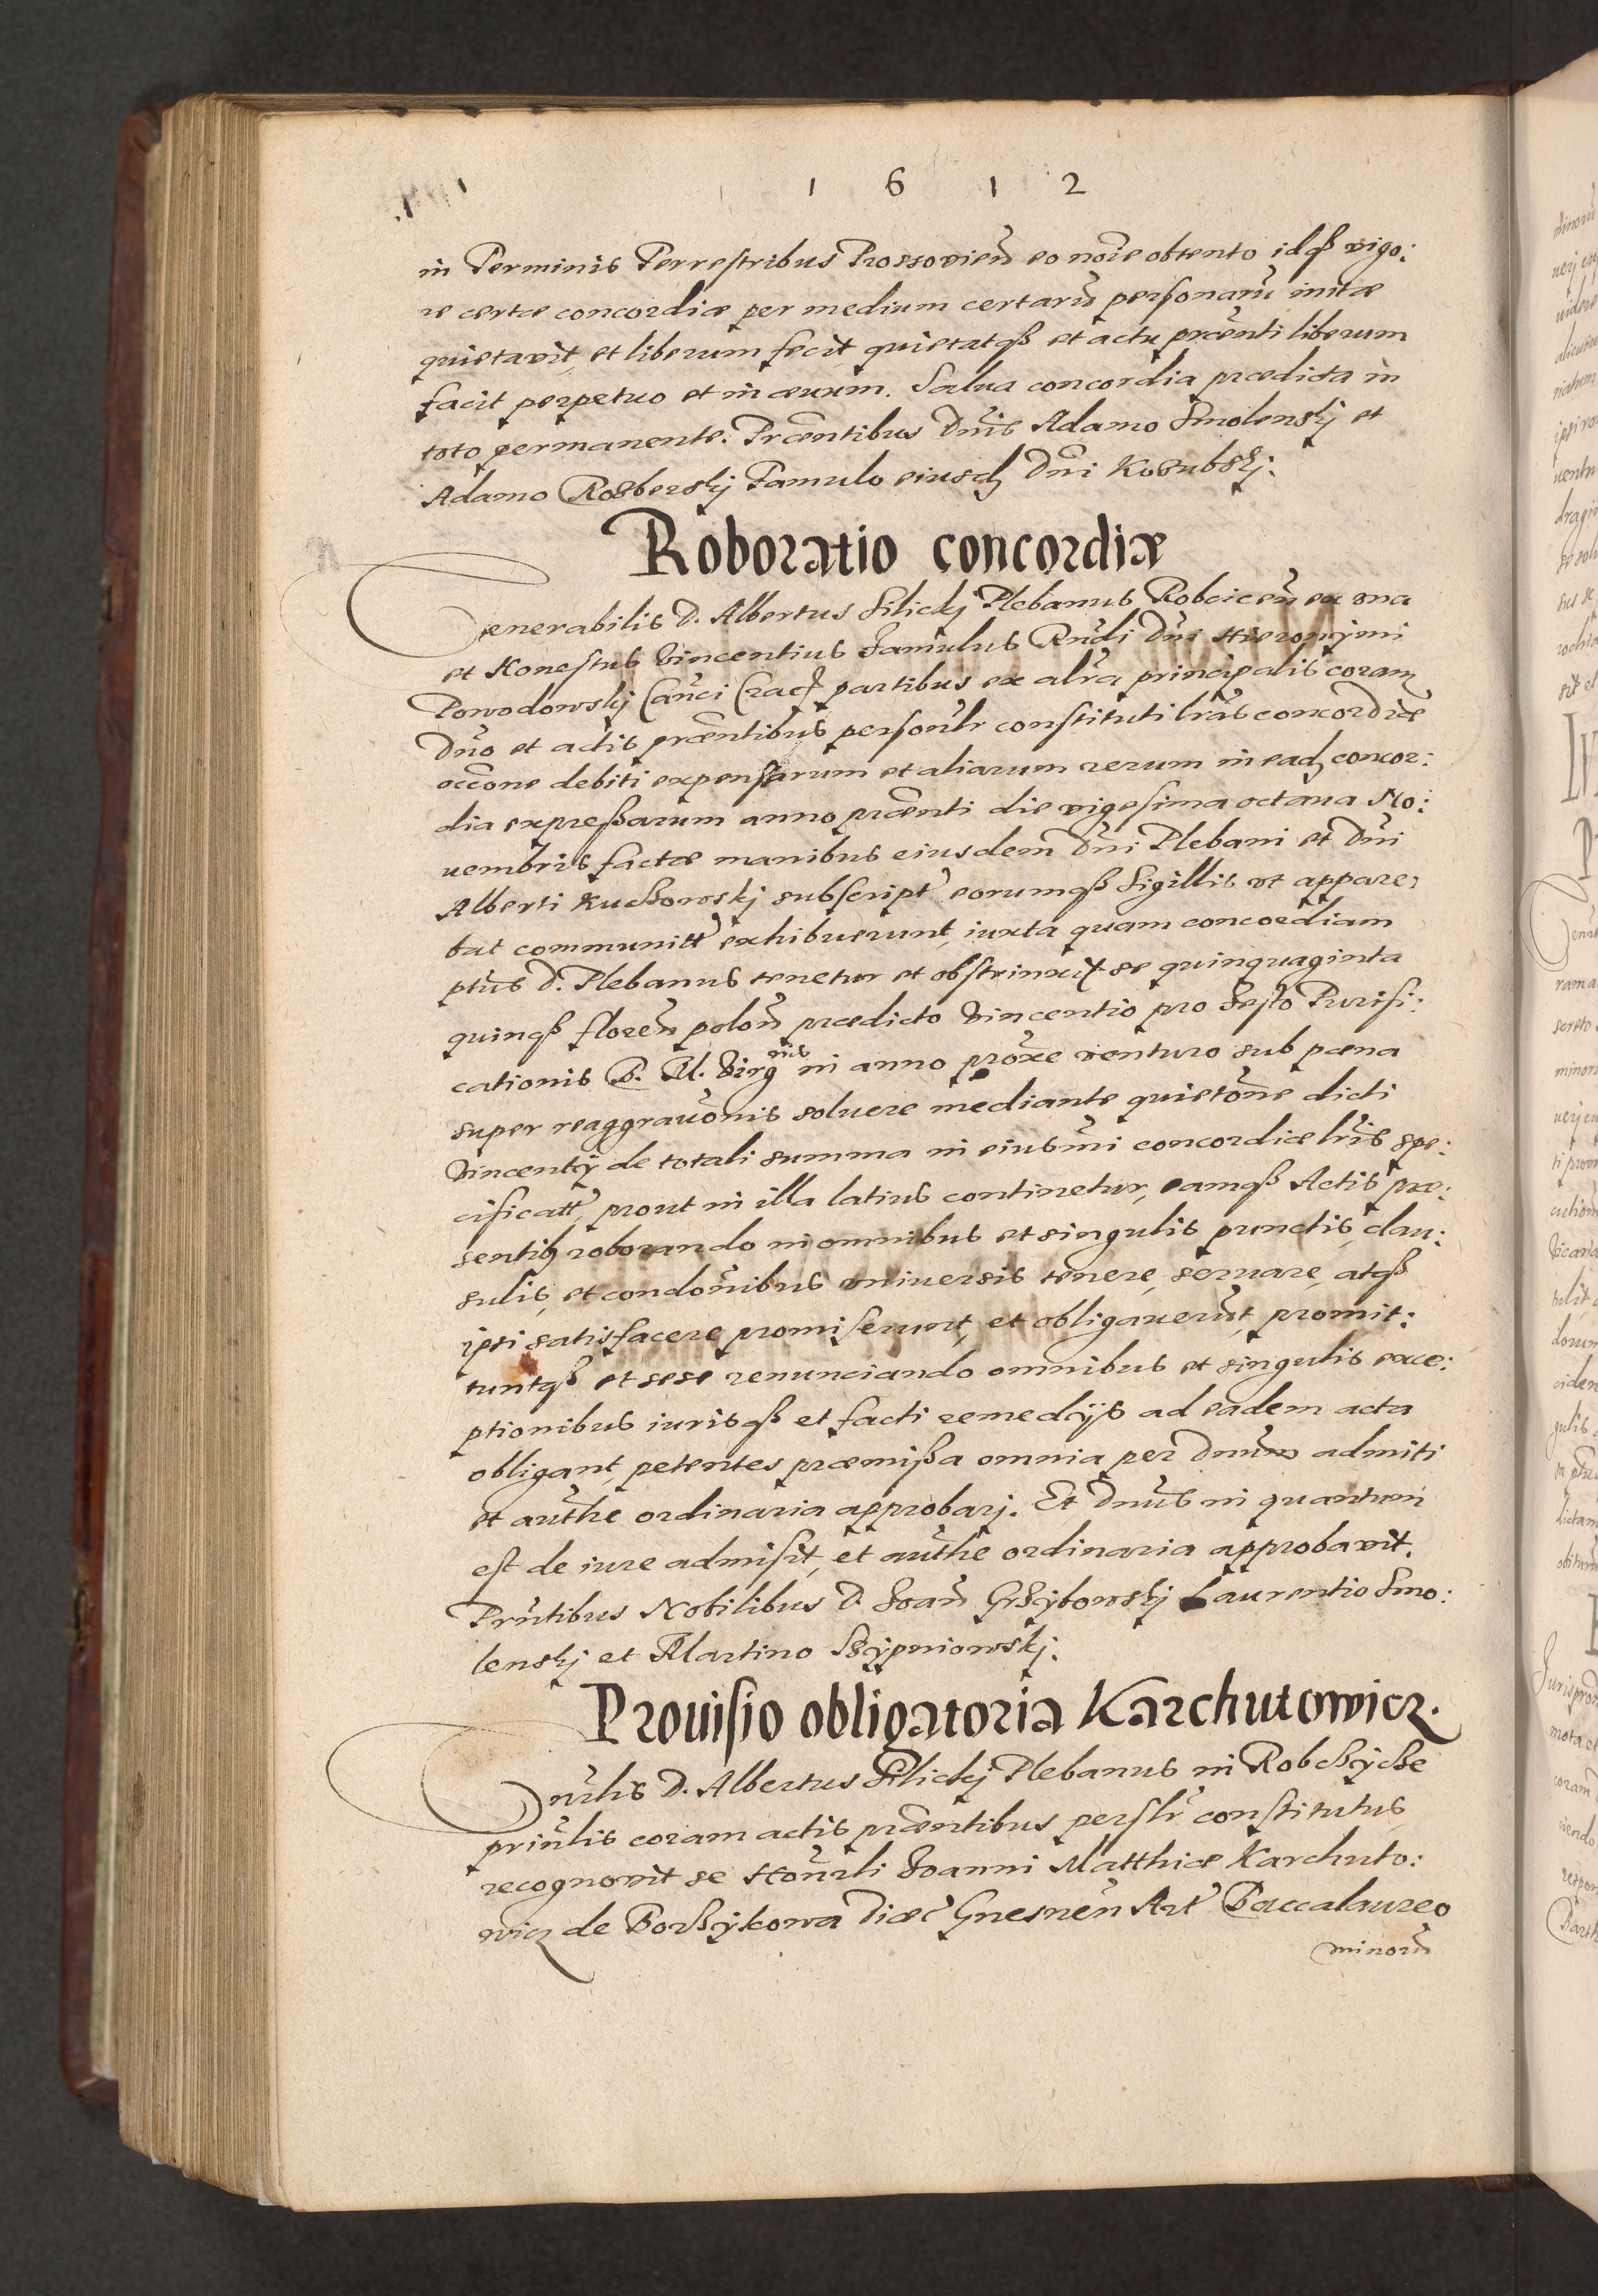 1 6 1 2
in Terminis Terrestribus Prossovien̄ eo noīe obtento idqꝫ vigo:
re certæ concordiæ per medium certarū personarū initæ
quietavit, et liberum fecit, quietatqꝫ et actu præn̄ti liberum
facit perpetuo et in ævum. Salua concordia prædicta in
toto permanente. Præn̄tibus Dn̄is Adamo Smolenskj et
Adamo Famulo eiusdꝫ Dn̄i Kosubskj.
Roboratio concordiæ
Venerabilis D. Albertus Silickj Plebanus Robcicen̄ ex vna
et Honestus Vincentius Famulus Rndi Dn̄i Hieronÿmi
Powodowskj Can̄ci Crac: partibus ex alr̄a principalis coram
Dn̄o et actis præn̄tibus person̄lr constituti lr̄as concordiæ
occōne debiti expensarum et aliarum rerum in eadꝫ concor:
dia expreßarum anno præn̄ti die vigesima octaua No:
uembris factæ manibus eiusdem Dn̄i Plebani et Dn̄i
Alberti Kuchowskj subscript' eorumqꝫ Sigillis vt appare:
bat communitt' exhibuerunt, iuxta quam concordiam
ptūs D. Plebanus tenetur et obstrinxit se quinquaginta
quinqꝫ floren̄ polon̄ prædicto Vincentio pro Festo Purifi:
cationis B. M. Virgnis in anno prox̄e venturo sub pæna
super reaggravōnis soluere mediante quietōne dicti
Vincentÿ de totali summa in eiusm̄i concordiæ lr̄is spe:
cificatt', prout in illa latius continetur, eamqꝫ Actis præ:
sentibꝫ roborando in omnibus et singulis punctis, clau:
sulis, et condōnibus vniuersis tenere, seruare, atqꝫ
ipsi satisfacere promiserunt, et obligauerūt, promit:
tuntqꝫ et sese renunciando omnibus et singulis exce:
ptionibus iurisqꝫ et facti remedÿs ad eadem acta
obligant, petentes præmißa omnia per Dnūm admiti
et auth̄e ordinaria approbarj. Et Dnūs in quantum
est de iure admisit, et auth̄e ordinaria approbavit.
Prn̄tibus Nobilibus D. Joan̄ Grzÿbowskj Laurentio Smo:
lenskj et Martino Szÿpniowskj.
Prouisio obligatoria Karchutowicz.
Vn̄rlis D. Albertus Silickj Plebanus in Robczÿcze
prin̄lis coram actis præn̄tibus persl̄r constitutus
recognovit se Hon̄rli Joanni Matthiæ Karchuto:
wicz de Borzÿkowa Diœc' Gnesnen̄ Art' Baccalaureo
minorū